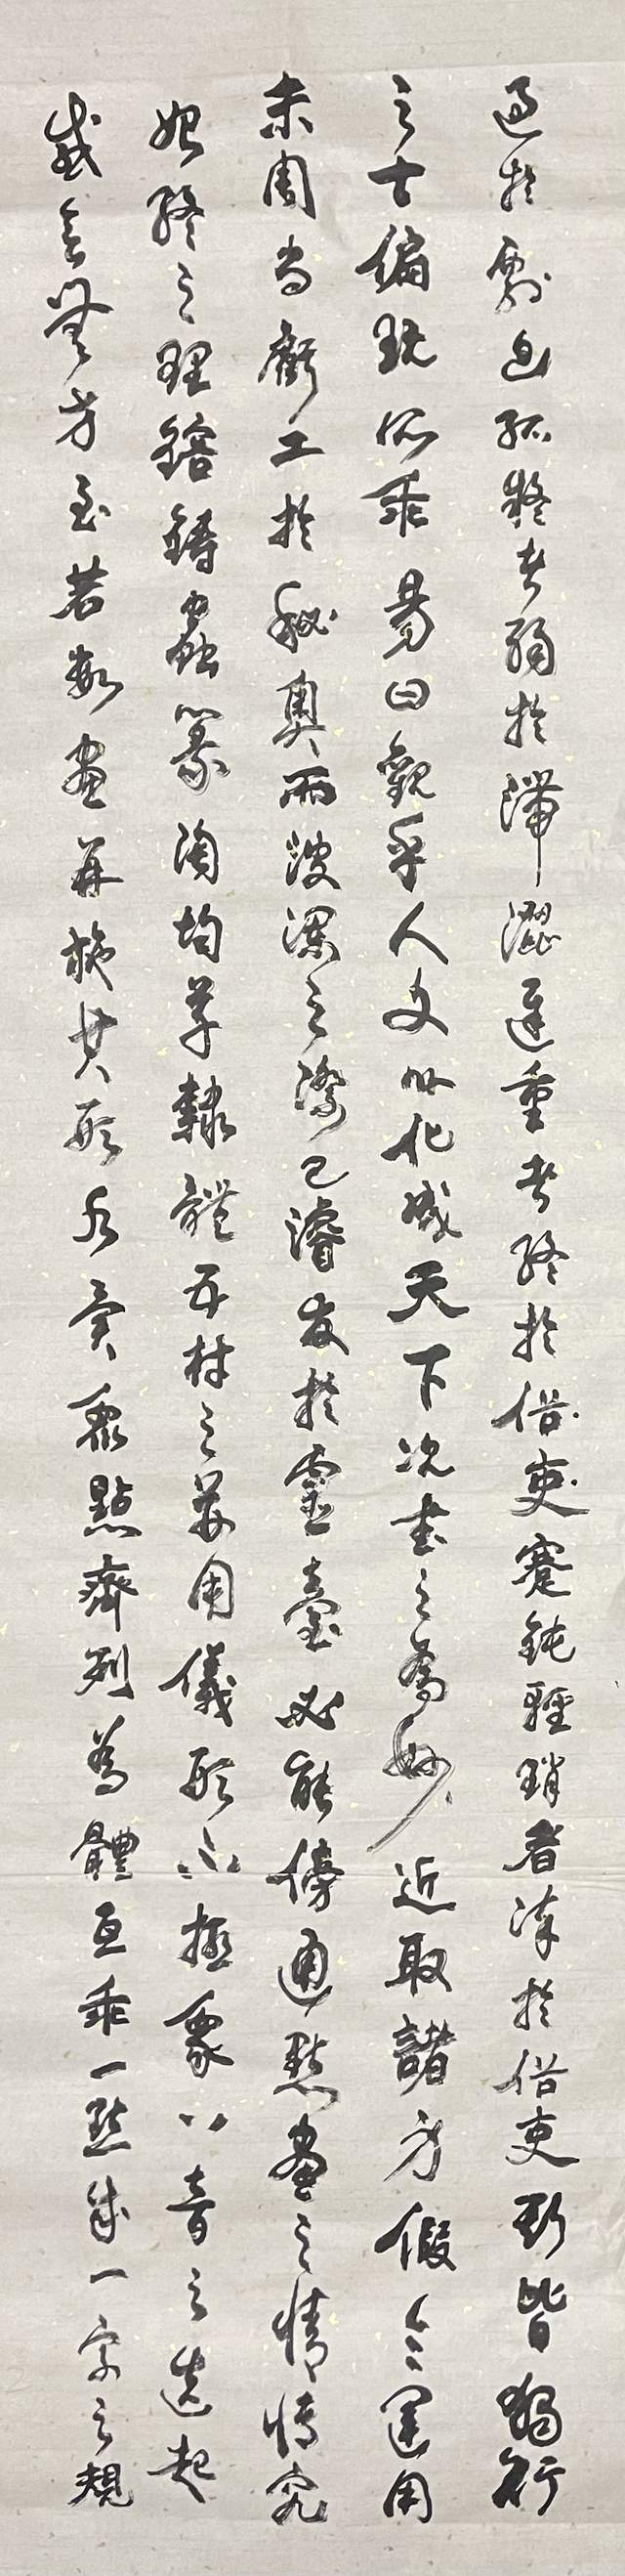 過於剽迫狐疑者溺於滯澀遲重者終於俗吏蹇鈍輕瑣者染於俗吏斯皆獨行
之士偏玩所乖易曰觀乎人文以化成天下況書之為妙近取諸身假令運用
未周尚虧工於秘奧而波瀾之際已濬發於靈臺必能傍通點畫之情博究
始終之理鎔鑄蟲篆陶均草隸體五材之並用儀形不極象八音之迭起
感會無方至若數畫並施其形各異眾點齊列為體互乖一點成一字之規